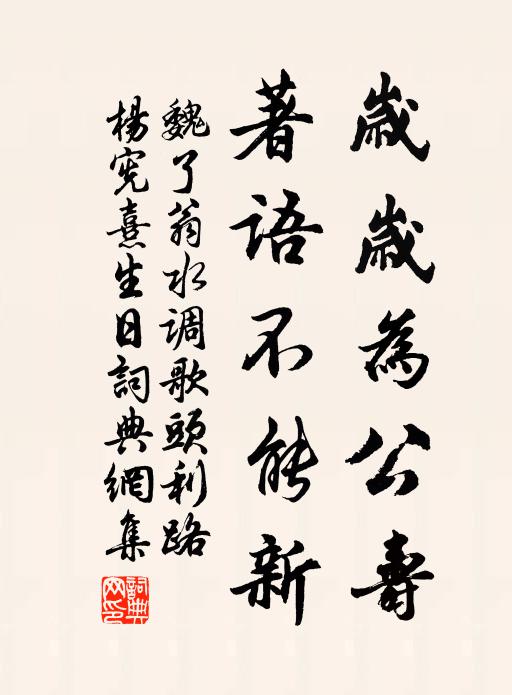 歲歲為公壽
著語不能新
魏了翁水调歌頭利路
楊宪熹生日詞典網集
詞典網印